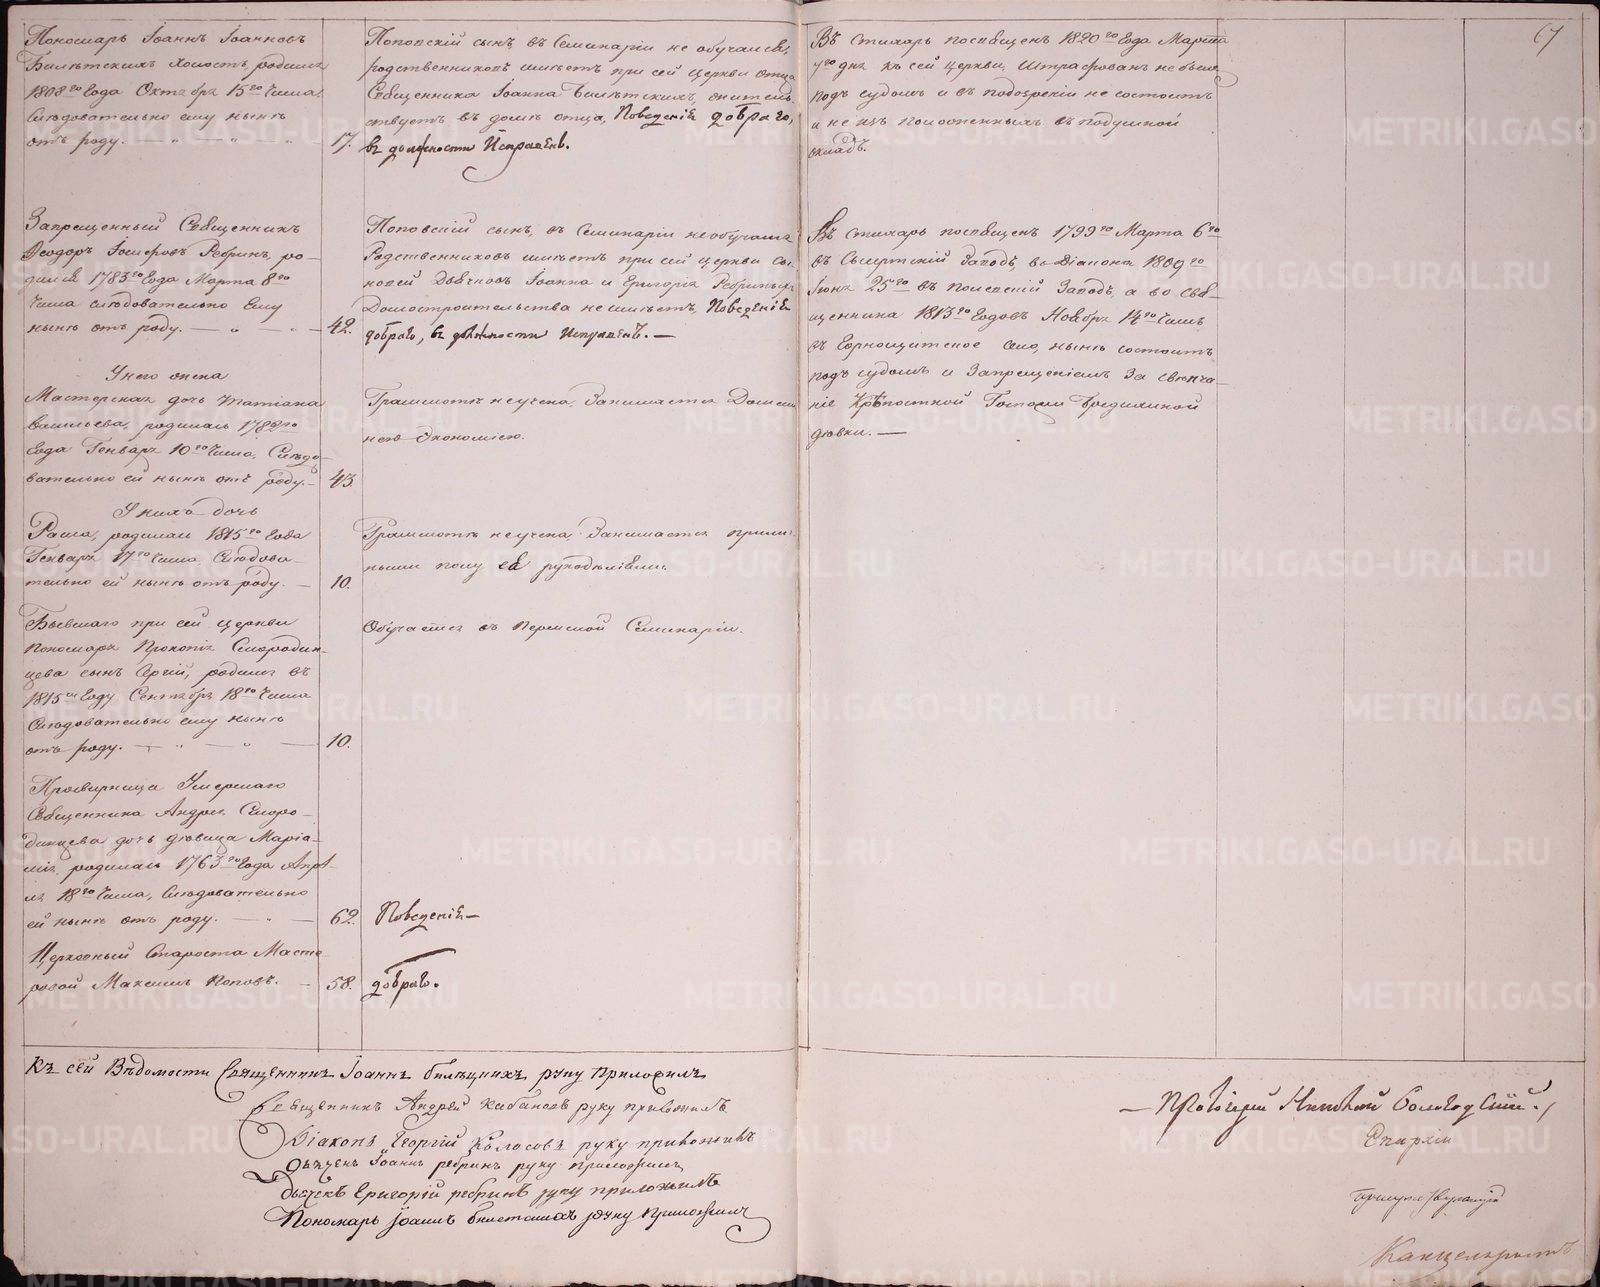 67
Пономарь Іоаннъ Іоанновъ
холостъ, родился
1808го Года Октября 15го Числа,
слѣдовательно ему нынѣ
отъ роду. 17.
Поповскій сынъ, въ Семинаріи не обучался,
родственниковъ имѣетъ при сей церкви отца
Священника Іоанна
въ домѣ отца, Поведенія добраго,
въ должности Исправенъ.
Въ стихарь посвященъ 1820го Года Марта
7го дня къ сей Церкви, Штрафованъ не былъ
подъ судомъ и въ подозрѣніи не состоитъ
и не изъ положенныхъ въ подушной
окладъ.
Запрещенный Священникъ
Ѳеодоръ Іосифовъ Ребринъ, ро-
дился 1783го Года Марта 8го
Числа слѣдовательно Ему
нынѣ отъ роду. 42.
Поповскій сынъ, въ Семинаріи не обучался
Родственниковъ имѣетъ при сей церкви сы-
новей Дьячковъ Іоанна и Григорія Ребриныхъ
Домостроительства не имѣетъ, Поведенія
добраго, въ должности Исправенъ.
Въ стихарь посвященъ 1799го Марта 6го
въ Заводъ, въ Діакона 1809го
Іюня 25го въ Заводъ, а во Свя-
щенника 1813го Годовъ Ноября 14го Числъ
въ Горнощитское село, нынѣ состоитъ
подъ судомъ и Запрещеніемъ За свѣнча-
ніе Крѣпостной Госпожи
дѣвки.
У него жена
Мастерская дочь Татіана
Васильева, родилась 1782го
Года Генваря 10го Числа, Слѣдо-
вательно ей нынѣ отъ роду. 43.
Грамотѣ не учена, Занимается Домаш
нею Экономіею.
У нихъ дочь
Раиса, родилась 1815го Года
Генваря 17го Числа Слѣдова-
тельно ей нынѣ отъ роду. 10.
Грамотѣ не учена Занимается прили-
ными полу ея рукодѣліями.
Бывшаго при сей церкви
Пономаря Прокопія Смородин-
цева сынъ Сергій, родился въ
1815м Году Сентября 18го Числа
Слѣдовательно ему нынѣ
отъ роду. 10.
Обучается въ Пермской Семинаріи.
Просвирница Умершаго
Священника Андрея Смиро-
динцева дочь дѣвица Маріа-
мія, родилась 1763го Года Апрѣ-
ля 18го Числа, Слѣдовательно
ей нынѣ отъ роду. 62.
Поведенія
Церковный Староста Масте-
ровой Максимъ Поповъ. 58.
добраго.
Къ сей Вѣдомости Священникъ Іоаннъ руку Приложилъ
Священникъ Андрей руку приложилъ
Діаконъ Георгій Колосовъ руку приложилъ
Дьячекъ Іоаннъ ребринъ руку приложилъ
дьячекъ Григорій ребринъ руку приложилъ
Пономарь Іоаннъ руку Приложилъ
Протоіерей Николай
Канцеляристъ
METRIKI.GASO-URAL.RU